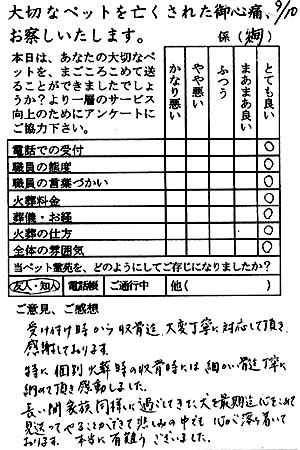 大切なペットを亡くされた御心痛、
9/10
お察しいたします。
係(
本日は、あなたの大切なペッ
トを、まごころこめて送
ることができましたでしょ
うか?より一層のサービス
向上のためにアンケートに
ご協力下さい。
かなり悪い
やや悪い
ふつう
まあまあ良い
とても良い
電話での受付 ○
職員の態度 ○
職員の言葉づかい ○
火葬料金 ○
葬儀・お経 ○
火葬の仕方 ○
全体の雰囲気 ○
当ペット霊苑を、どのようにしてご存じになりましたか?
友人・知人 電話帳 ご通行中 他( )
ご意見、ご感想
受け付け時から収骨迄、大変丁寧に対応して頂き
感謝しております。
特に個別火葬時の収骨時には細かい骨迄丁寧に
納めて頂き感動しました。
長い間家族同様に過ごしてきた犬を最期迄心をこめて
見送ってやることができて悲しみの中でも心が落ち着いて
おります。本当に有難うございました。